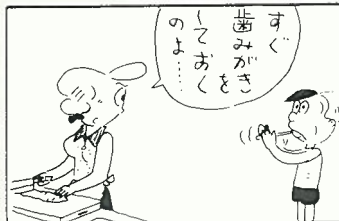 すぐ
歯みがき
を
しておく
のよ……